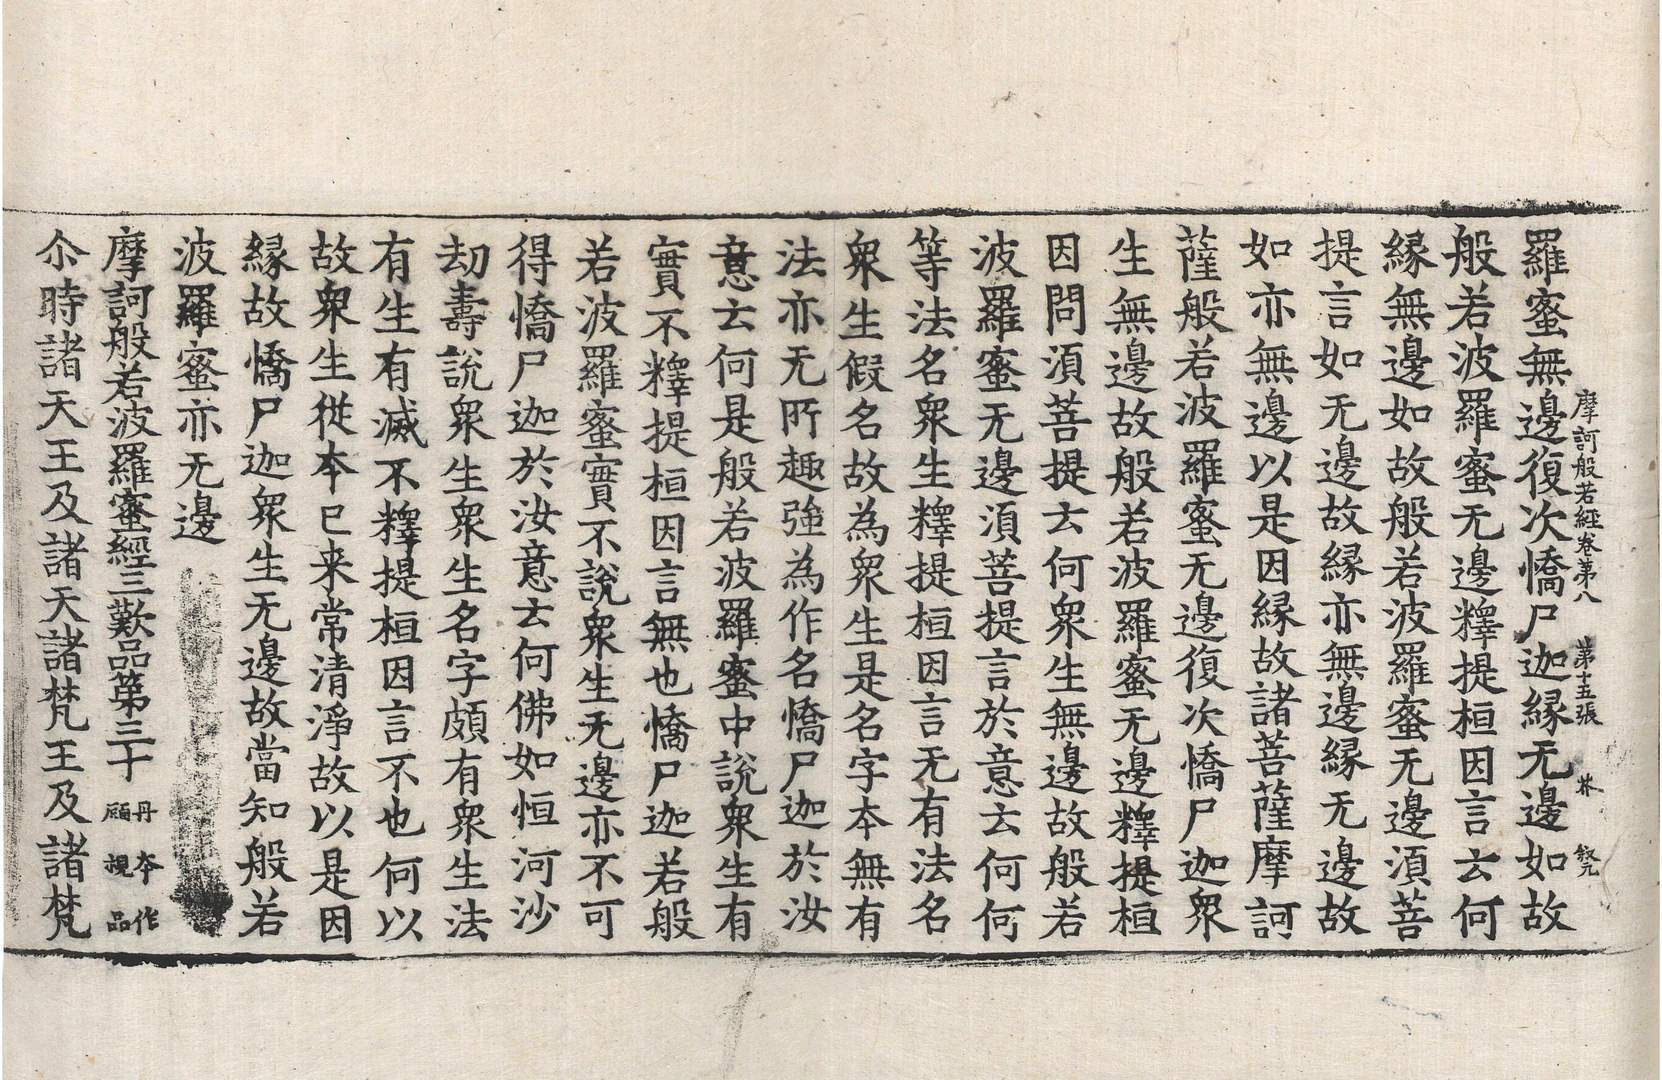 摩訶般若經卷第八　第十五張　芥　叙元
羅蜜無邊復次憍尸迦緣无邊如故
般若波羅蜜无邊釋提桓因言云何
緣無邊如故般若波羅蜜无邊湏菩
提言如无邊故緣亦無邊緣无邊故
如亦無邊以是因緣故諸菩薩摩訶
薩般若波羅蜜无邊復次憍尸迦衆
生無邊故般若波羅蜜无邊釋提桓
因問湏菩提云何衆生無邊故般若
波羅蜜无邊湏菩提言於意云何何
等法名衆生釋提桓因言无有法名
衆生假名故為衆生是名字本無有
法亦无所趣強為作名憍尸迦於汝
意云何是般若波羅蜜中說衆生有
實不釋提桓因言無也憍尸迦若般
若波羅蜜實不說衆生无邊亦不可
得憍尸迦於汝意云何佛如恒河沙
劫壽說衆生衆生名字頗有衆生法
有生有滅不釋提桓因言不也何以
故衆生從本已来常清淨故以是因
緣故憍尸迦衆生无邊故當知般若
波羅蜜亦无邊
摩訶般若波羅蜜經三歎品第三十　丹本作顧視品
尒時諸天王及諸天諸梵王及諸梵